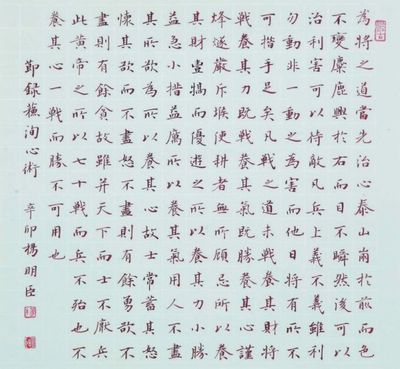 為將之道當先治心泰山崩於前而色
不變麋鹿興於右而目不瞬然後可以
治利害可以待敵凡兵上義不義雖利
勿動非一動之為害而他日將有所不
可措手足矣凡戰之道未戰養其財將
戰養其力既戰養其氣既勝養其心謹
烽燧嚴斥堠使耕者無所顧忌所以養
其財豐犒而優遊之所以養其力小勝
益急小挫益厲所以養其氣用人不盡
其所欲為所以養其心故士常蓄其怒
懷其欲而不盡怒不盡則有餘勇欲不
盡則有餘貪故雖并天下而士不厭兵
此黃帝之所以七十戰而兵不殆也不
養其心一戰而勝不可用也
節錄蘇洵心術 辛卯楊明臣